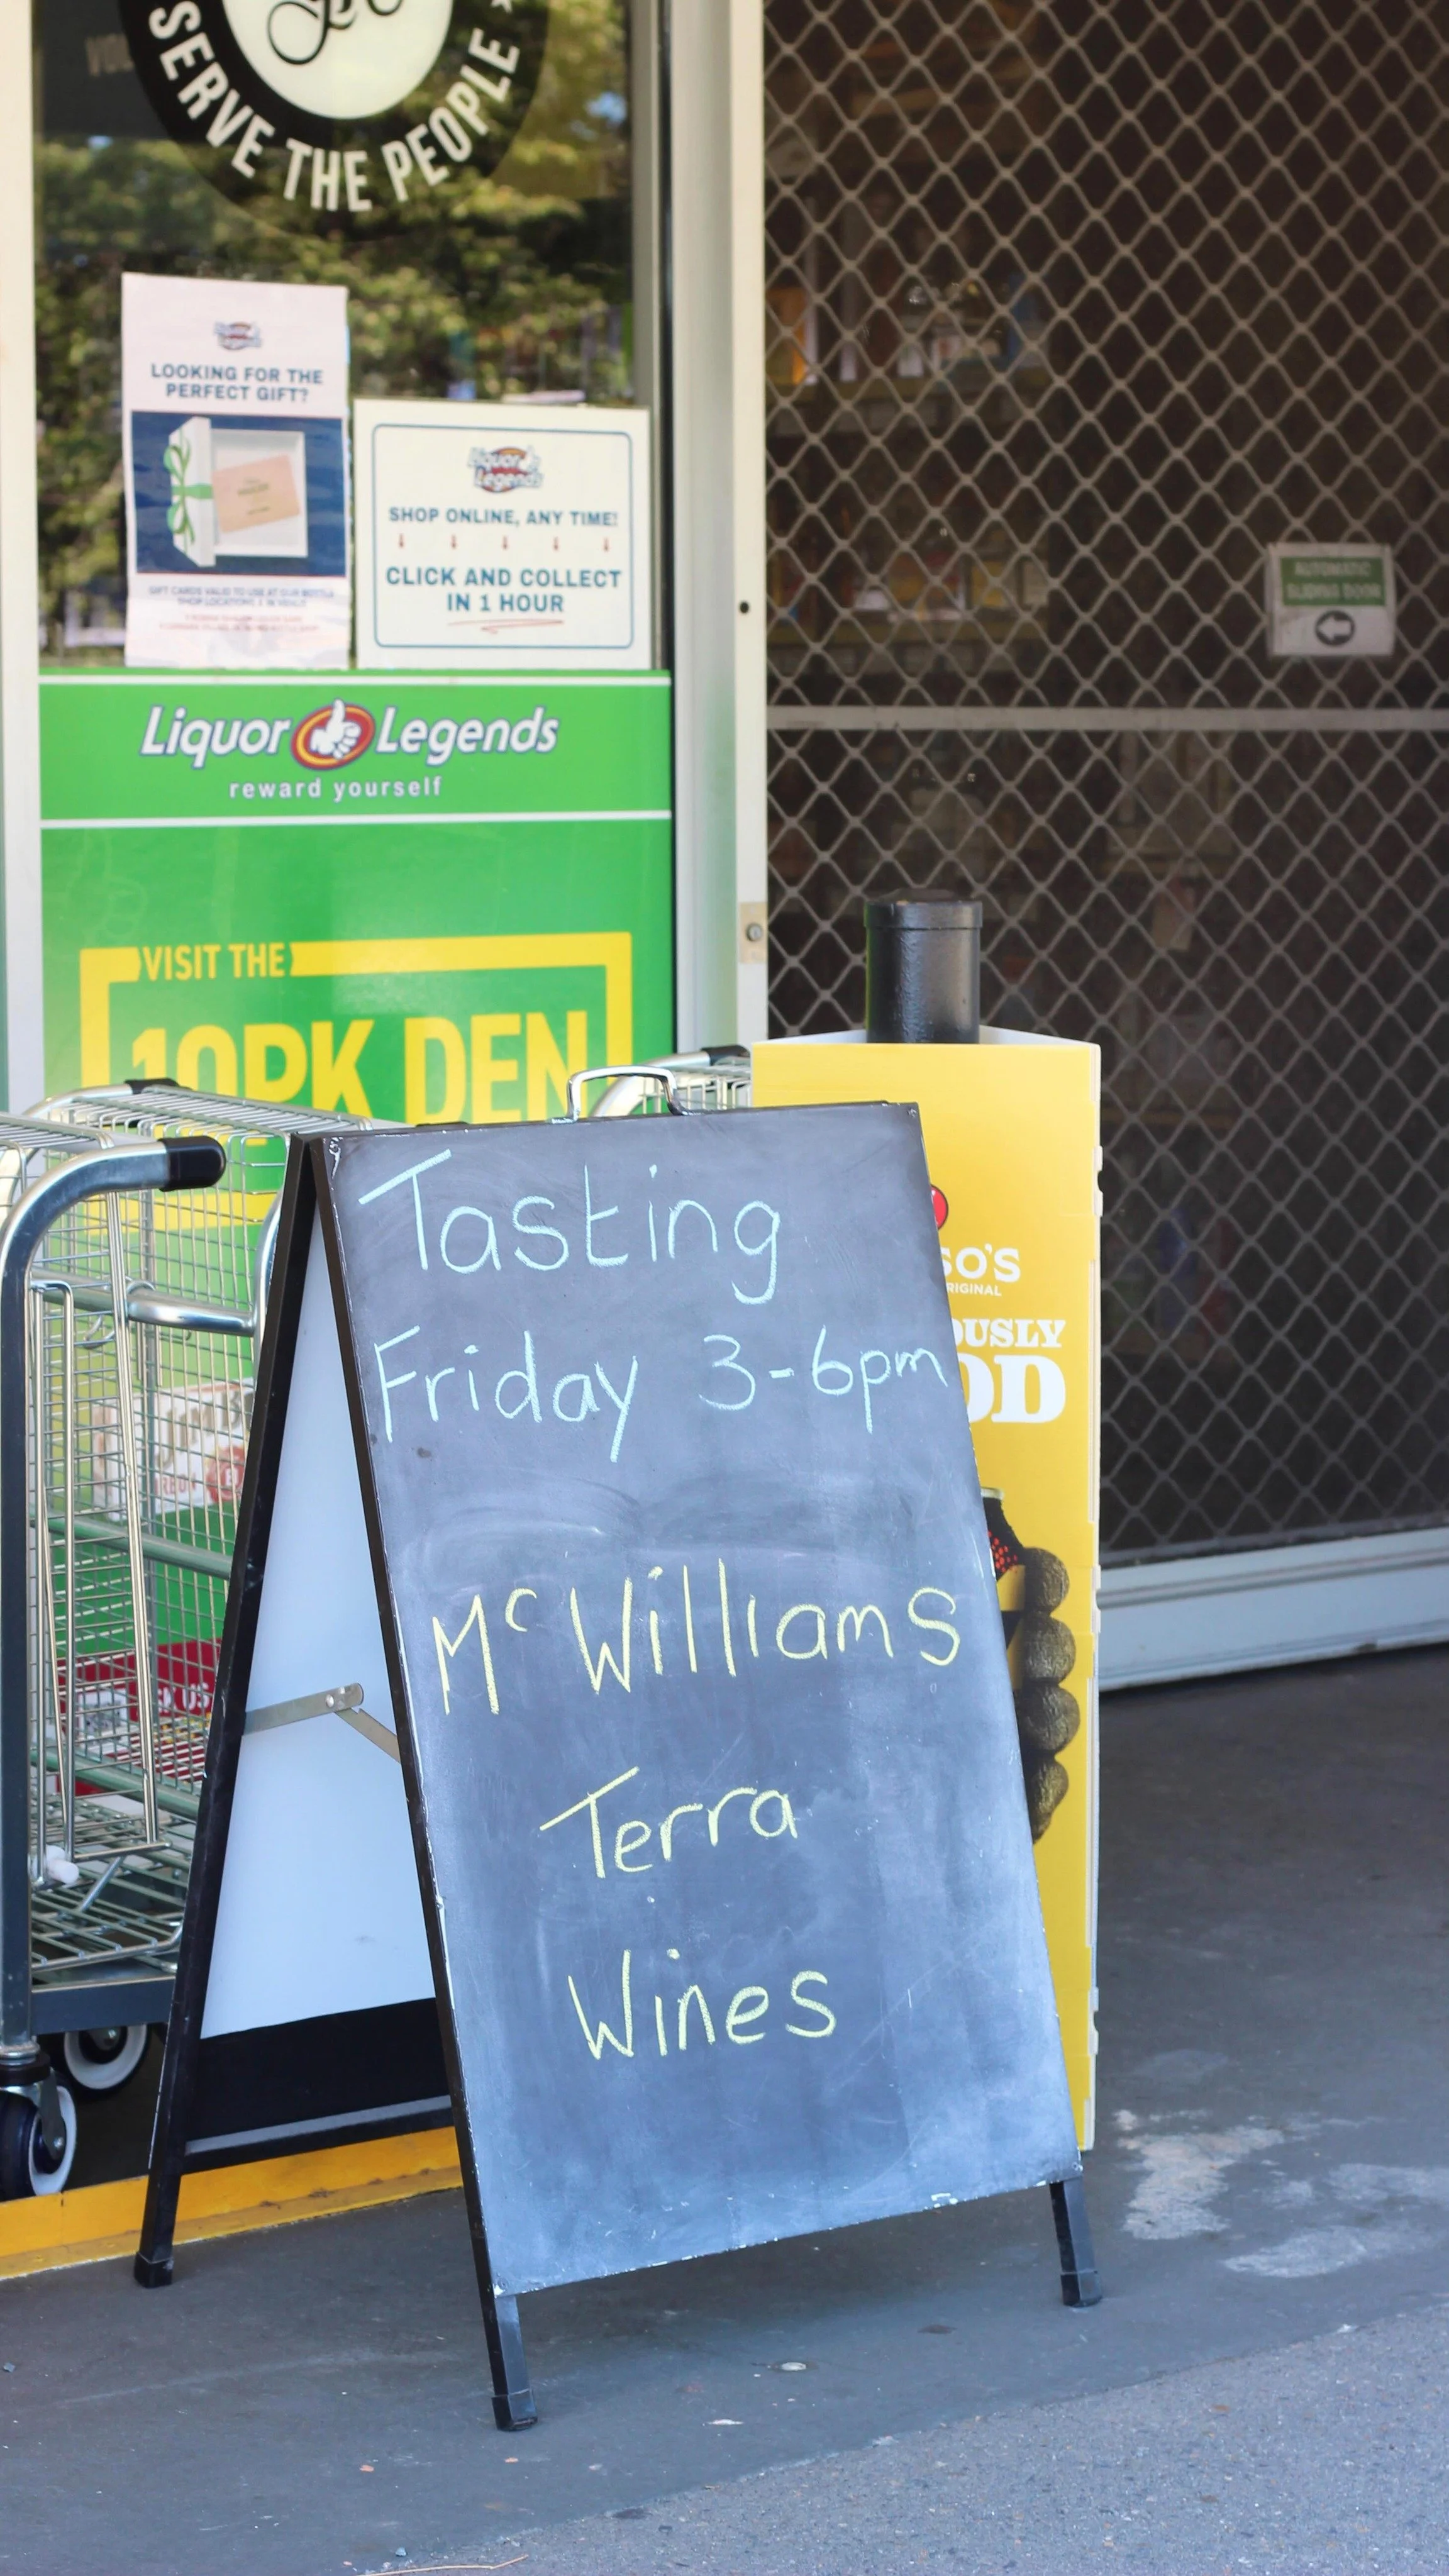 SERVE THE PEOPLE
LOOKING FOR THE
PERFECT GIFT?
GIFT CARDS VALID TO USE AT OUR BOTTLE
SHOP LOCATIONS & IN VENUE!
Liquor Legends
SHOP ONLINE, ANY TIME!
CLICK AND COLLECT
IN 1 HOUR
AUTOMATIC
SLIDING DOOR
Liquor Legends
reward yourself
VISIT THE
10PK DEN
Tasting
Friday 3-6pm
McWilliams
Terra
Wines
SO'S
RIGINAL
OUSLY
OD